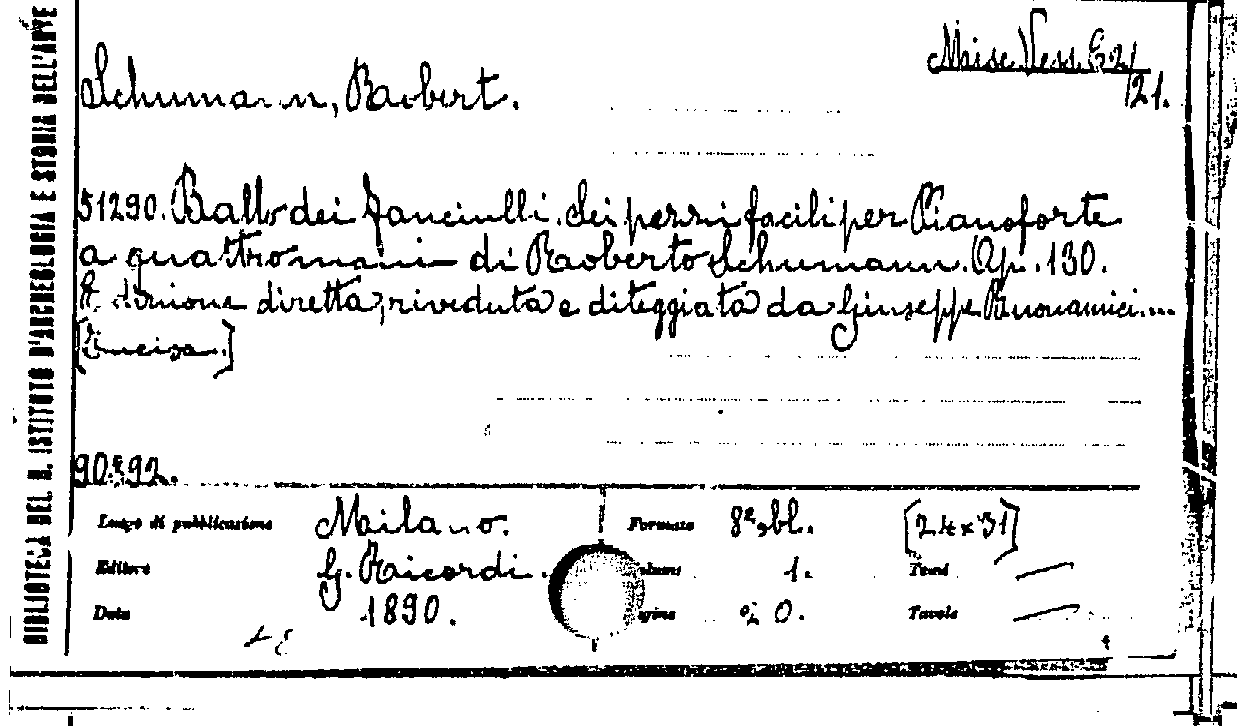 BIBLIOTECA DEL R. ISTITUTO D'ARCHEOLOGIA E STORIA DELL'ARTE
Misc. Vess. E 2/
21.
Schumann, Robert.
51290. Ballo dei fanciulli. Sei pezzi facili per Pianoforte
a quattro mani di Roberto Schumann. Op. 130.
diretta, riveduta e diteggiata da Giuseppe Buonamici....
[Incisa.]
Luogo di pubblicazione Milano. Formato 8º obl. [24x31]
Editore G. Ricordi. 1. Tomi —
Data 1890. Tavole —